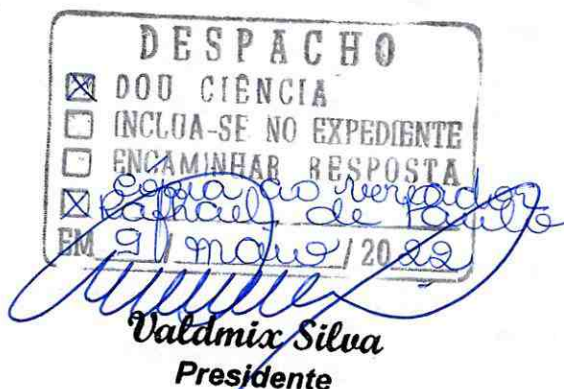 DESPACHO
DOU CIÊNCIA
INCLUA-SE NO EXPEDIENTE
ENCAMINHAR RESPOSTA
Cópia ao vereador
Raphael de Paula
EM 9 / maio / 2022
Valdmix Silva
Presidente